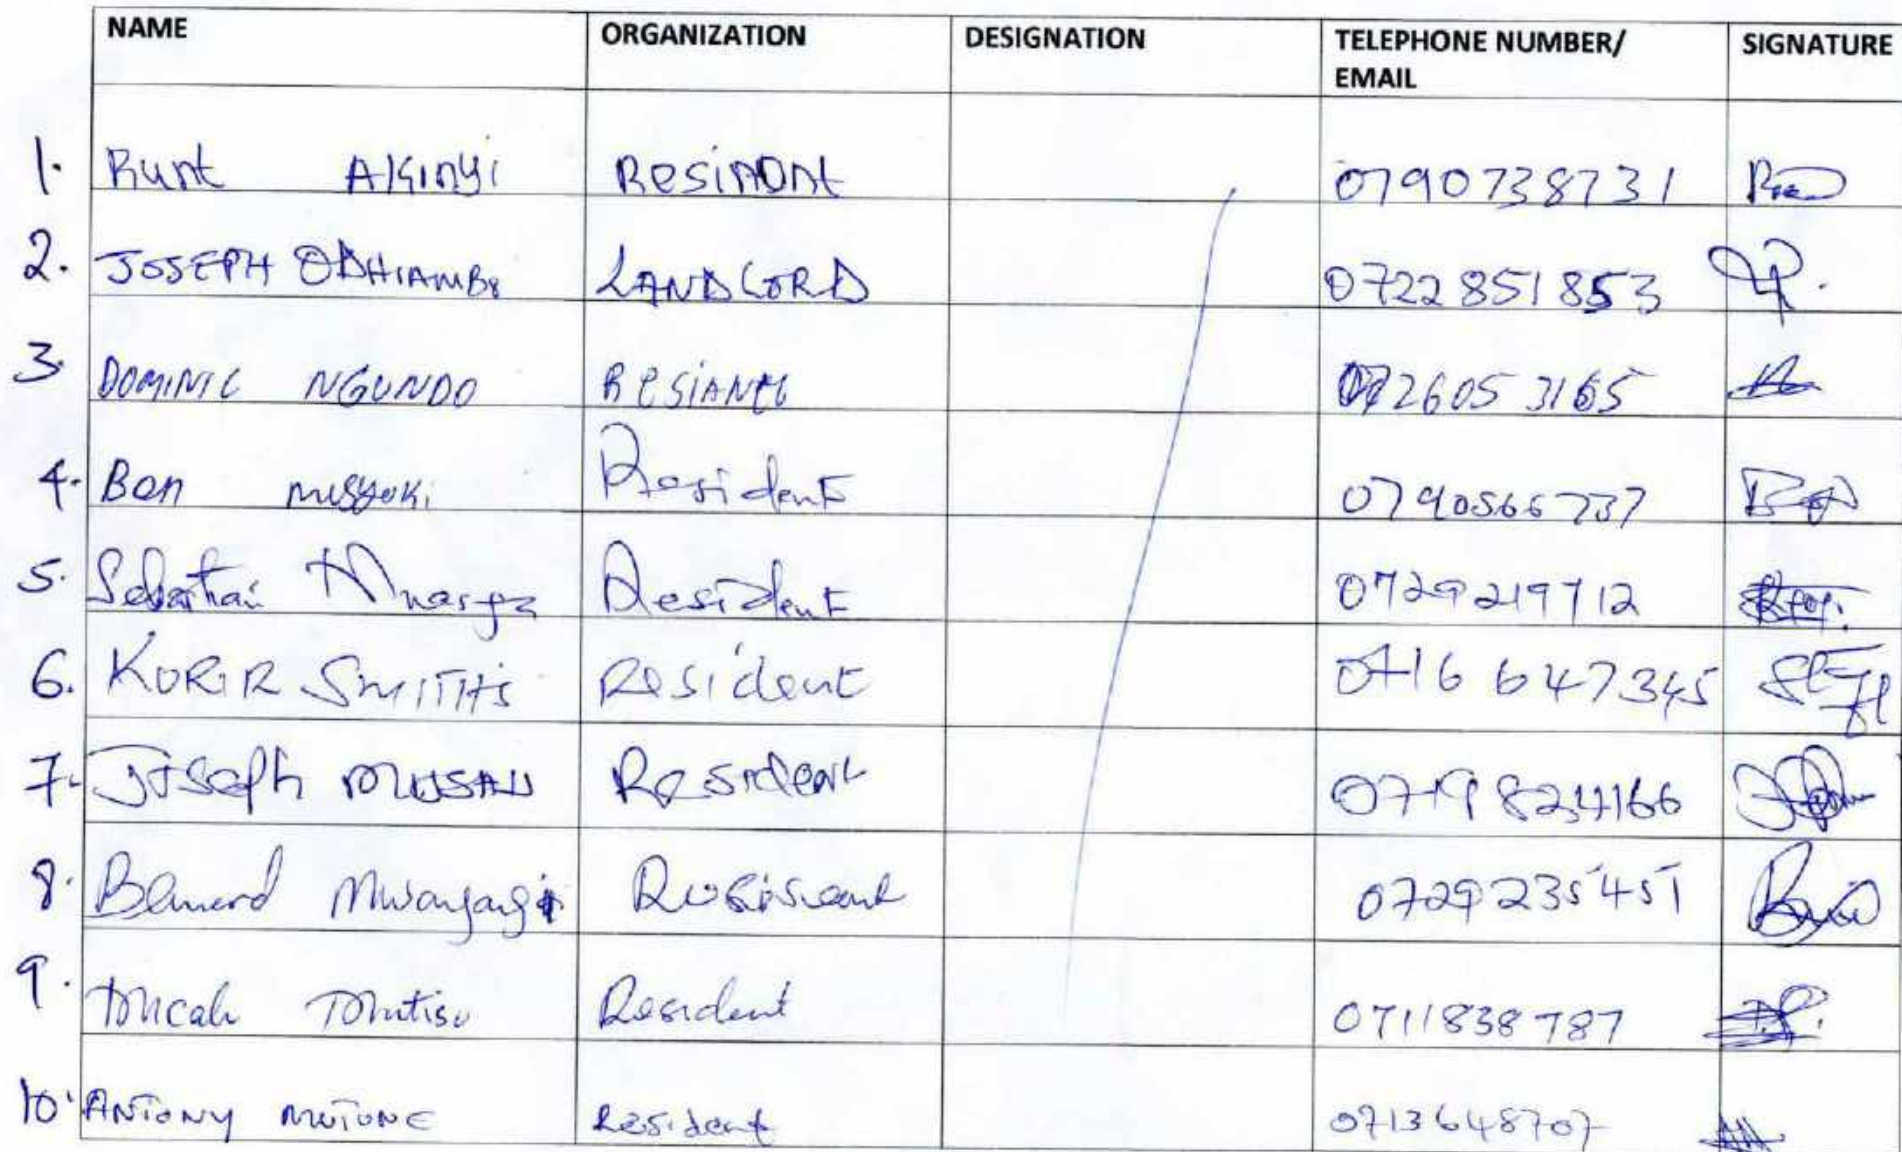 NAME ORGANIZATION DESIGNATION TELEPHONE NUMBER/ EMAIL SIGNATURE
1. Runt Akinyi Resident 0790738731
2. JOSEPH ODHIAMBO LANDLORD 0722851853
3. DOMINIC NGUNDO 0726053165
4. Ben musyoki Resident 0790566737
5. Resident 0729219712
6. KORIR SMITHS Resident 0716 647345
7. Joseph MUSAU Resident
8. 0729235451
9. Micah Mutiso Resident 0711838787
10. ANTONY Resident 0713648707